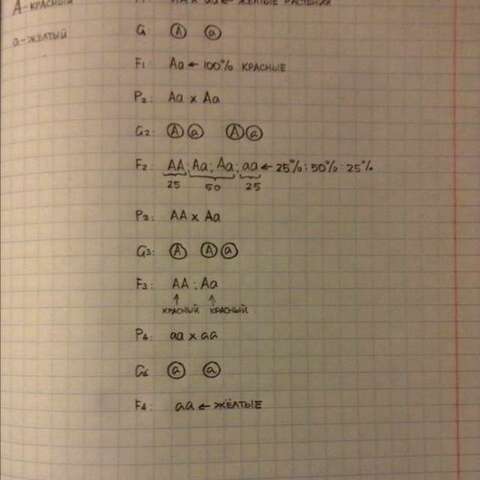 A - КРАСНЫЙ
P: AA x aa ← ЖЁЛТЫЕ РАСТЕНИЯ
a - ЖЁЛТЫЙ
G: A a
F1: Aa ← 100% КРАСНЫЕ
P2: Aa x Aa
G2: A a A a
F2: AA : Aa : Aa : aa ← 25% : 50% : 25%
25 50 25
P3: AA x Aa
G3: A A a
F3: AA : Aa
↑ ↑
КРАСНЫЙ КРАСНЫЙ
P4: aa x aa
G4 a a
F4: aa ← ЖЁЛТЫЕ